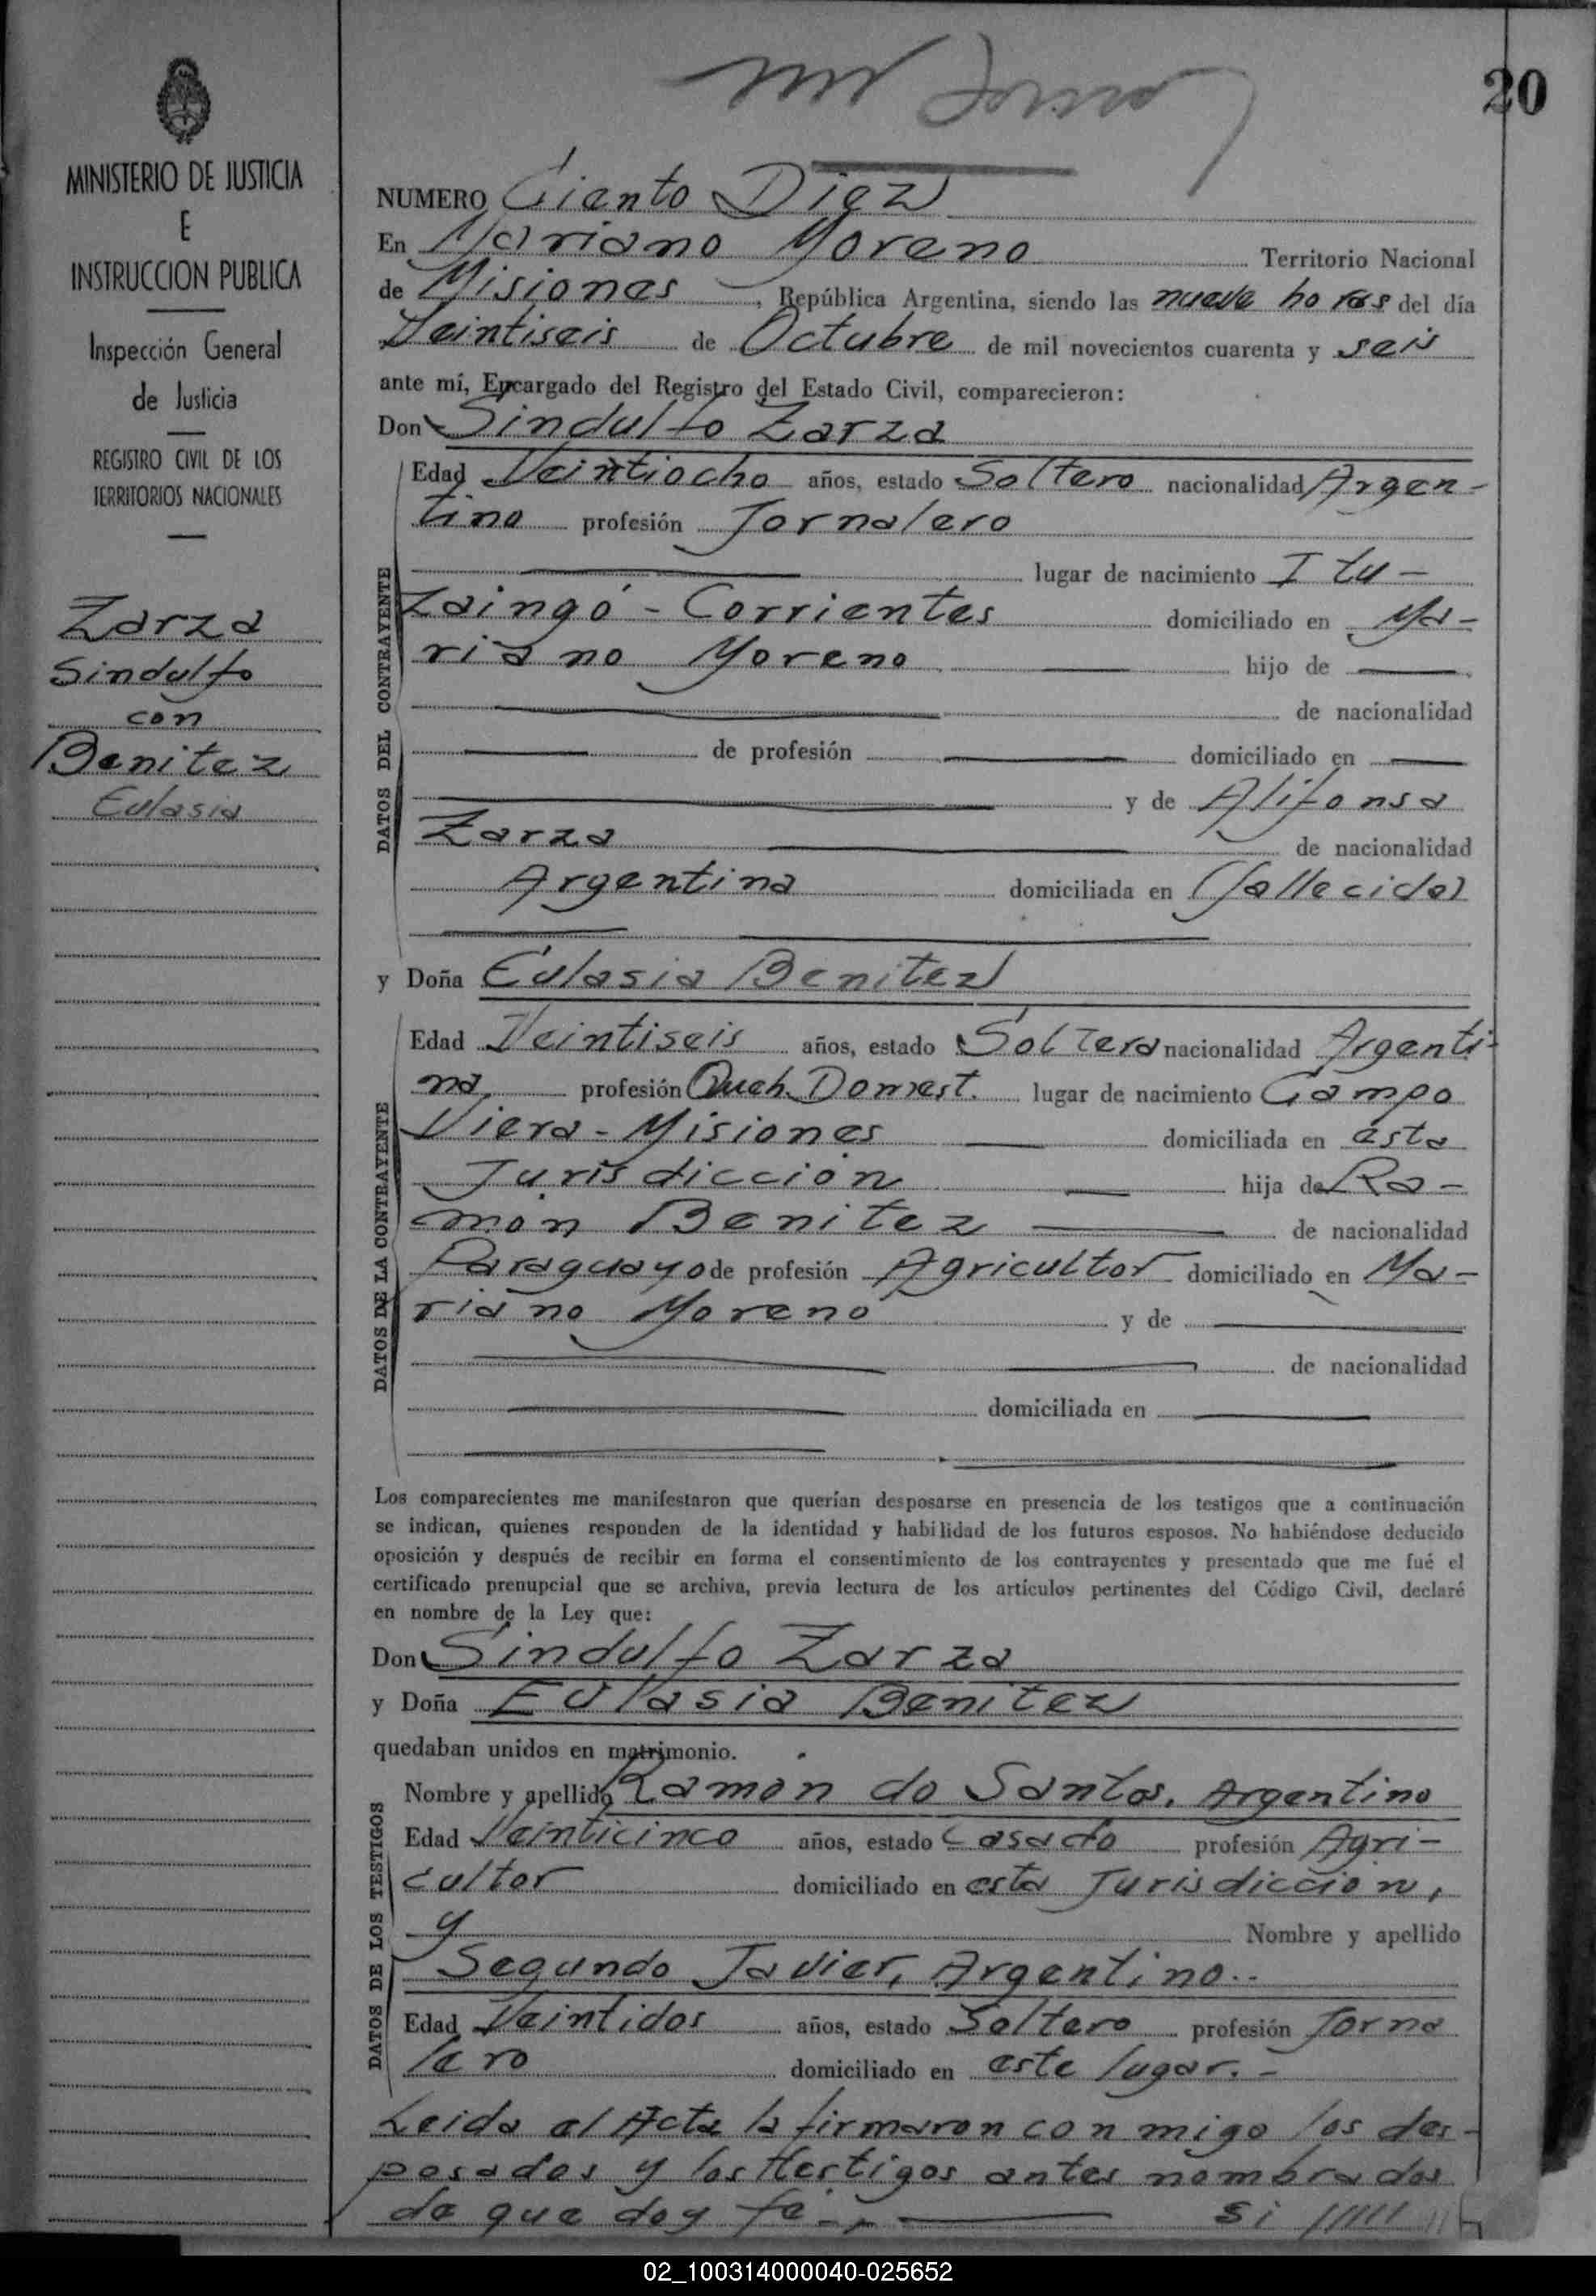 20
MINISTERIO DE JUSTICIA
E
INSTRUCCION PUBLICA
Inspección General
de Justicia
REGISTRO CIVIL DE LOS
TERRITORIOS NACIONALES
Zarza
Sindulfo
con
Benitez
Eulasia
NUMERO Ciento Diez
En Mariano Moreno Territorio Nacional
de Misiones, República Argentina, siendo las nueve horas del día
Veintiseis de Octubre de mil novecientos cuarenta y seis
ante mí, Encargado del Registro del Estado Civil, comparecieron:
Don Sindulfo Zarza
DATOS DEL CONTRAYENTE
Edad Veintiocho años, estado Soltero nacionalidad Argen-
tino profesión Jornalero
lugar de nacimiento Itu-
zaingó - Corrientes domiciliado en Ma-
riano Moreno hijo de
de nacionalidad
de profesión domiciliado en
y de Alifonsa
Zarza de nacionalidad
Argentina domiciliada en (fallecida)
y Doña Eulasia Benitez
DATOS DE LA CONTRAYENTE
Edad Veintiseis años, estado Soltera nacionalidad Argenti-
na profesión Queh. Domest. lugar de nacimiento Campo
Viera - Misiones domiciliada en esta
Jurisdicción hija de Ra-
món Benitez de nacionalidad
Paraguayo de profesión Agricultor domiciliado en Ma-
riano Moreno y de
de nacionalidad
domiciliada en
Los comparecientes me manifestaron que querían desposarse en presencia de los testigos que a continuación
se indican, quienes responden de la identidad y habilidad de los futuros esposos. No habiéndose deducido
oposición y después de recibir en forma el consentimiento de los contrayentes y presentado que me fué el
certificado prenupcial que se archiva, previa lectura de los artículos pertinentes del Código Civil, declaré
en nombre de la Ley que:
Don Sindulfo Zarza
y Doña Eulasia Benitez
quedaban unidos en matrimonio.
DATOS DE LOS TESTIGOS
Nombre y apellido Ramón do Santos, Argentino
Edad Veinticinco años, estado Casado profesión Agri-
cultor domiciliado en esta Jurisdicción,
y Nombre y apellido
Segundo Javier, Argentino..
Edad Veintidos años, estado Soltero profesión Jorna
lero domiciliado en este lugar.-
Leida el Acta la firmaron con migo los des-
posados y los testigos antes nombrados
de que doy fe.-
02_100314000040-025652